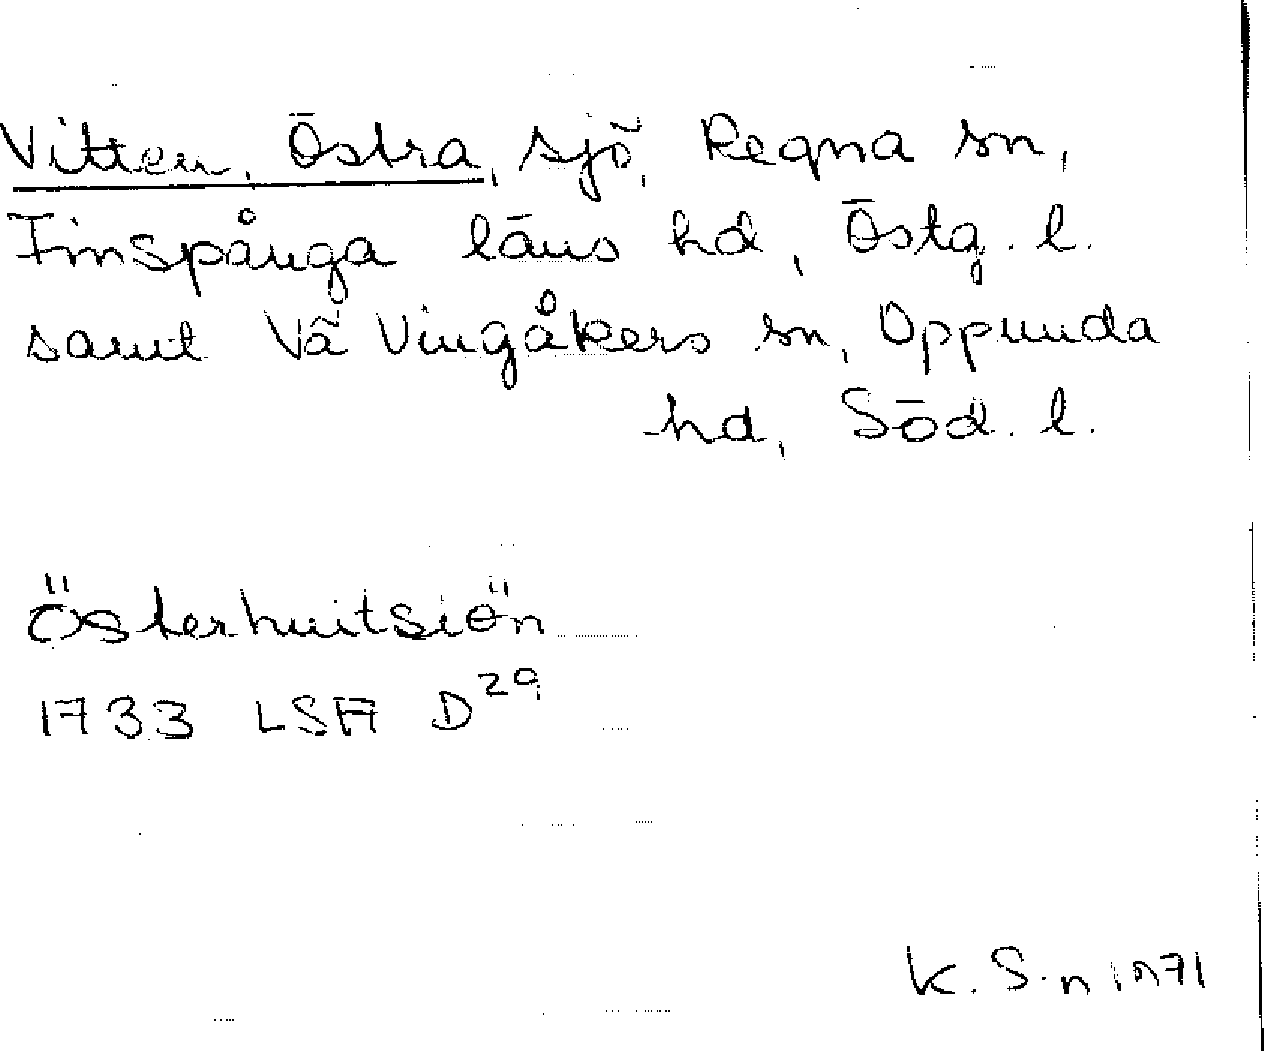 Vitten, Östra, sjö, Regna sn,
Finspånga läns hd, Östg. l.
samt Vä Vingåkers sn, Oppunda
hd, Söd. l.
Österhuitsiön
1733 LSA D29
K. S-n 1971